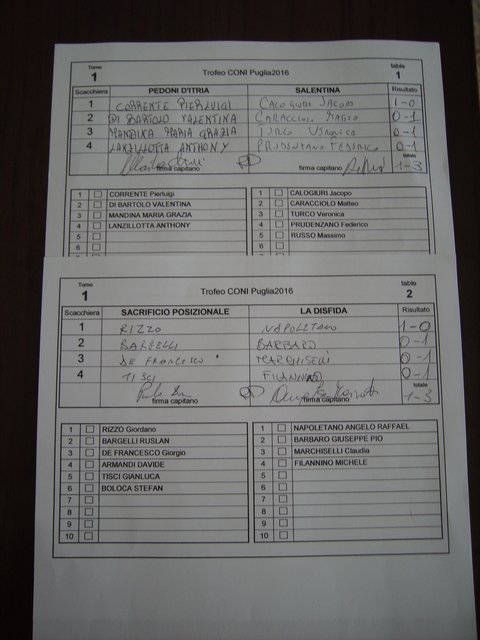 Turno Trofeo CONI Puglia2016 table
1 1
Scacchiera PEDONI D'ITRIA SALENTINA Risultato
1 CORRENTE PIERLUIGI CALOGIURI JACOPO 1-0
2 DI BARTOLO VALENTINA CARACCIOLO MATTEO 0-1
3 MANDINA MARIA GRAZIA TURCO VERONICA 0-1
4 LANZILLOTTA ANTHONY PRUDENZANO FEDERICO 0-1
totale
firma capitano firma capitano 1-3
1 CORRENTE Pierluigi 1 CALOGIURI Jacopo
2 DI BARTOLO VALENTINA 2 CARACCIOLO Matteo
3 MANDINA MARIA GRAZIA 3 TURCO Veronica
4 LANZILLOTTA ANTHONY 4 PRUDENZANO Federico
5 5 RUSSO Massimo
6 6
Turno Trofeo CONI Puglia2016 table
1 2
Scacchiera SACRIFICIO POSIZIONALE LA DISFIDA Risultato
1 RIZZO NAPOLETANO 1-0
2 BARGELLI BARBARO 0-1
3 DE FRANCESCO MARCHISELLI 0-1
4 TISCI FILANNINO 0-1
totale
firma capitano firma capitano 1-3
1 RIZZO Giordano 1 NAPOLETANO ANGELO RAFFAEL
2 BARGELLI RUSLAN 2 BARBARO GIUSEPPE PIO
3 DE FRANCESCO Giorgio 3 MARCHISELLI Claudia
4 ARMANDI DAVIDE 4 FILANNINO MICHELE
5 TISCI GIANLUCA 5
6 BOLOCA STEFAN 6
7 7
8 8
9 9
10 10